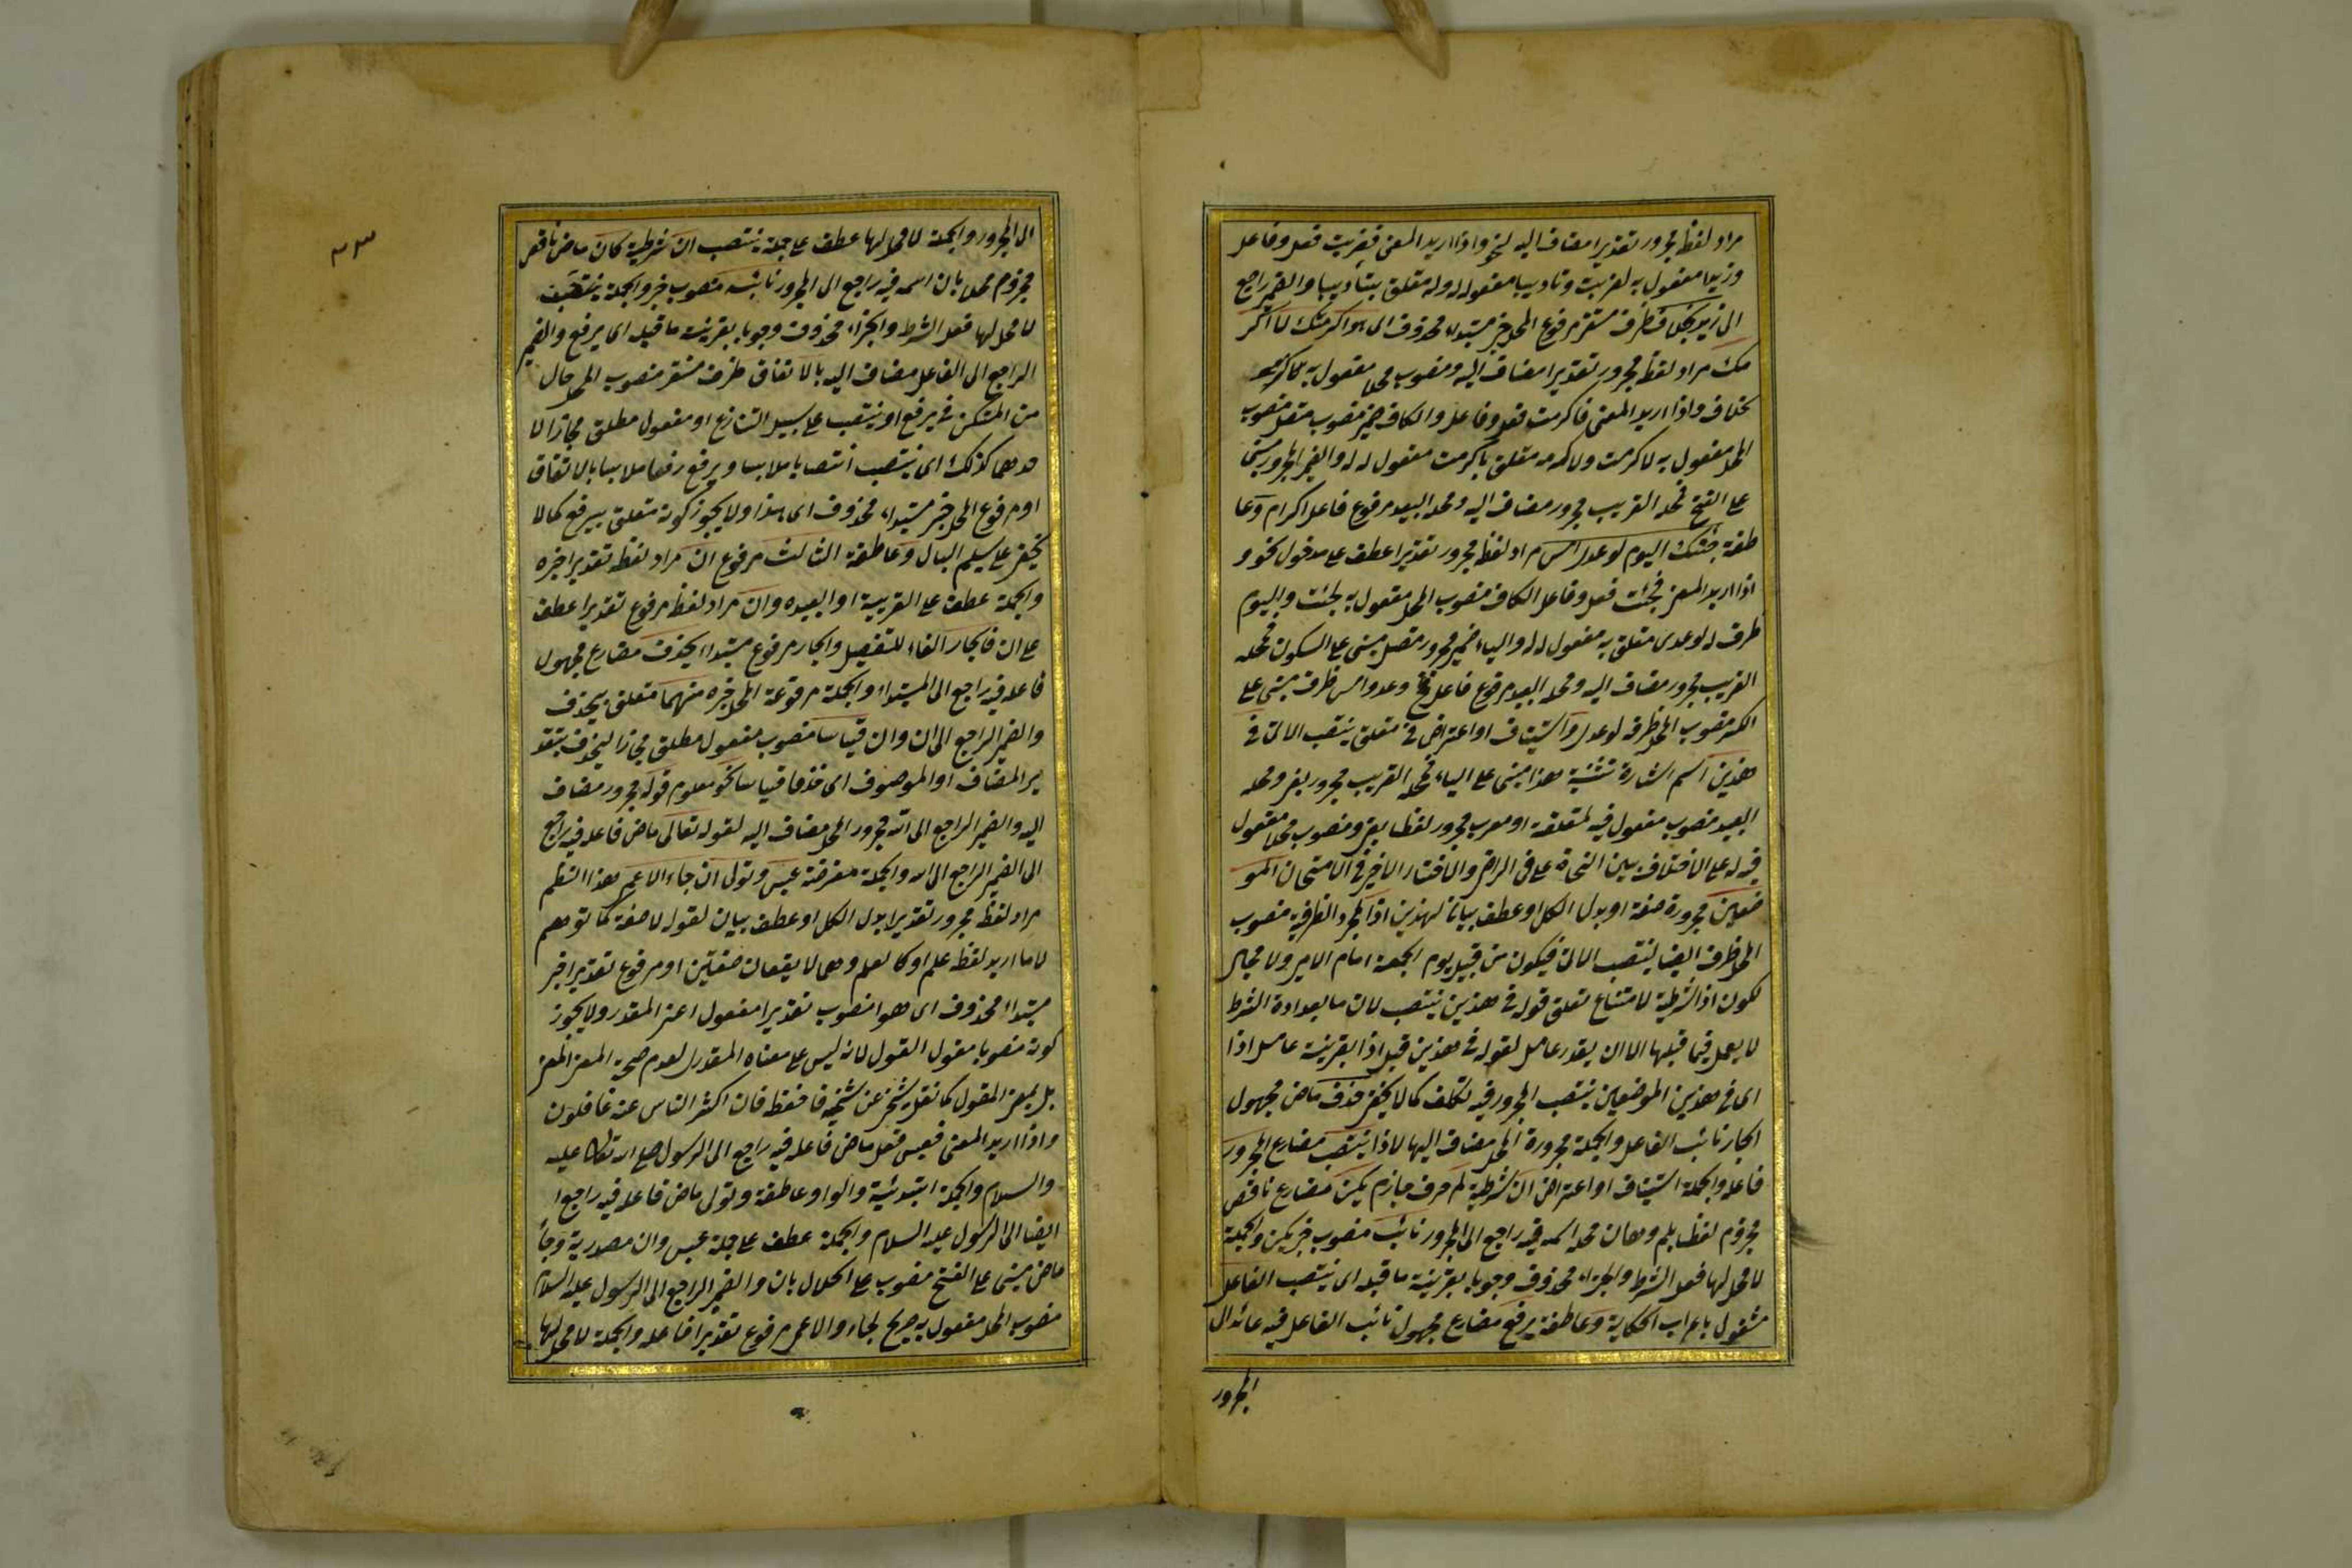 مراد لفظ مجرور تقديرا مضاف اليه لنحو واذا اريد المعنى فضربت فعل وفاعل
وزيدا مفعول به لضربت وتاديبا مفعول له وله متعلق بتأديبا والضمير راجع
الى زيد بخلاف ظرف مستقر مرفوع المحل خبر مبتداء محذوف اى هو اكرمتك لاكر
مك مراد لفظ مجرور تقديرا مضاف اليه ومنصوب محلا مفعول به
بخلاف واذا اريد المعنى فاكرمت فعل وفاعل والكاف ضمير منصوب متصل منصوب
المحل مفعول به لاكرمت ولاكرمه متعلق باكرمت مفعول له له والضمير المجرور مبنى
على الفتح فمحله القريب مجرور مضاف اليه ومحله البعيد مرفوع فاعل اكرام وعا
طفة جئتك اليوم لوعدى امس مراد لفظ مجرور تقديرا عطف على مدخول نحو و
اذا اريد المعنى فجئت فعل وفاعل الكاف منصوب المحل مفعول به لجئت واليوم
ظرف له لوعدى متعلق به مفعول له له والياء ضمير مجرور متصل مبنى على السكون فمحله
القريب مجرور مضاف اليه ومحله البعيد مرفوع فاعل وعد وامس ظرف مبنى على
الكسر منصوب المحل ظرف لوعدى واستيناف او اعتراض فى متعلق ينتصب الاتى فى
هذين اسم اشارة تثنية هذا مبنى على الياء فمحله القريب مجرور بفى ومحله
البعيد منصوب مفعول فيه لمتعلقه او معرب مجرور لفظا بفى ومنصوب محلا مفعول
فيه له على الاختلاف بين النحاة على فى الرضى والاختار الاخير فى الامتحان المو
ضعين مجرورة صفة او بدل الكل او عطف بيان لهذين اذا لمجرد الظرفية منصوب
المحل ظرف ايضا لينتصب الاتى فيكون من قبيل يوم الجمعة امام الامير ولا مجال
لكون اذا شرطية لامتناع تعلق قوله فى هذين ينتصب لان ما بعد اداة الشرط
لا يعمل فيما قبلها الا ان يقدر عامل لقوله فى هذين قبل اذا بقرينة عامل اذا
اى فى هذين الموضعين ينتصب المجرور فيه تكلف كما لا يخفى حذف ماض مجهول
الجار نائب الفاعل والجملة مجرورة المحل مضاف اليها لاذا ينتصب مضارع المجرور
فاعله والجملة استيناف او اعتراض ان شرطية لم حرف جازم يكن مضارع ناقص
مجزوم لفظا بلم وبان محله اسمه فيه راجع الى المجرور نائب منصوب خبر يكن والجملة
لا محل لها فعل الشرط والجزاء محذوف وجوبا بقرينة ما قبله اى ينتصب الفاعل
مشغول باعراب الحكاية وعاطفة يرفع مضارع مجهول نائب الفاعل فيه عائد الى
المجرور
الى المجرور والجملة لا محل لها عطف على جملة ينتصب ان شرطية كان ماض ناقص
مجزوم محلا بان اسمه فيه راجع الى المجرور نائبه منصوب خبر والجملة
لا محل لها فعل الشرط والجزاء محذوف وجوبا بقرينة ما قبله اى يرفع والضمير
الراجع الى الفاعل مضاف اليه بالاتفاق ظرف مستقر منصوب المحل حال
من المستكن فى يرفع او ينتصب على سبيل التنازع او مفعول مطلق مجازا لا
حدهما كذلك اى ينتصب انتصابا ملابسا ويرفع رفعا ملابسا بالاتفاق
او مرفوع المحل خبر مبتداء محذوف اى هذا ولا يجوز كونه متعلق بيرفع كما لا
يخفى على سليم البال وعاطفة الثالث مرفوع ان مراد لفظه تقديرا خبره
والجملة عطف على القريبة او البعيده وان مراد لفظ مرفوع تقديرا عطف
على ان فالجار الفاء للتفصيل والجار مرفوع مبتداء يحذف مضارع مجهول
فاعله فيه راجع الى المبتداء والجملة مرفوعة المحل خبره منهما متعلق بيحذف
والضمير الراجع الى ان وان قياسا منصوب مفعول مطلق مجازا ليحذف بتقد
ير المضاف او الموصوف اى حذفا قياسا نحو معلوم قوله مجرور مضاف
اليه والضمير الراجع الى الله مجرور المحل مضاف اليه لقوله تعالى ماض فاعله فيه راجع
الى الضمير الراجع الى الله والجملة معترضة عبس وتولى ان جاءه الاعمى هذا النظم
مراد لفظ مجرور تقديرا بدل الكل او عطف بيان لقوله لا صفة كما توهم
لاما اريد لفظه علم او كالعلم وهما لا يقعان صفتين او مرفوع تقديرا خبر
مبتداء محذوف اى هو او منصوب تقديرا مفعول اعنى المقدر ولا يجوز
كونه منصوبا مفعول القول لانه ليس على معناه المقدرى لعدم صحة المعنى
بل بمعنى المقول كما نقل شيخى عن شيخه فاحفظه فان اكثر الناس عنه غافلون
واذا اريد المعنى فعبس فعل ماض فاعله فيه راجع الى الرسول صلى الله تعالى عليه
والسلام والجملة ابتدائية والواو عاطفة وتولى ماض فاعله فيه راجع ا
ايضا الى الرسول عليه السلام والجملة عطف على جملة عبس وان مصدرية وجاء
ماض مبنى على الفتح منصوب على المحل بان والضمير الراجع الى الرسول عليه السلام
منصوب المحل مفعول به صريح لجاء والاعمى مرفوع تقديرا فاعله والجملة لا محل لها